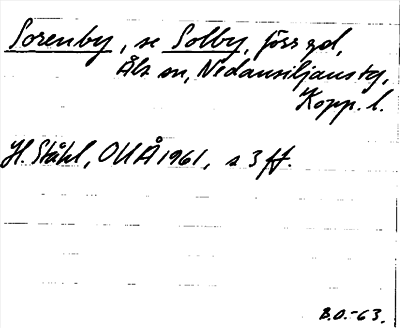 Sorenby, se Solby, förs gd,
Åls sn, Nedansiljans tg,
Kopp. l.
H. Ståhl, OUÅ 1961, s 3 ff.
B.O.-63.